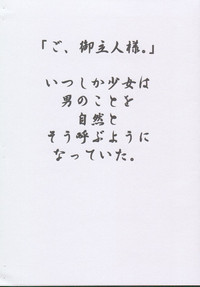 「ご、御主人様。」
いつしか少女は
男のことを
自然と
そう呼ぶように
なっていた。